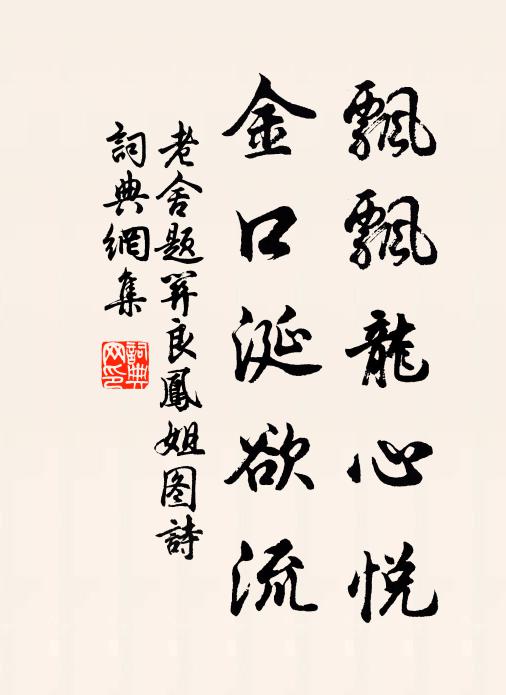 飄飄龍心悅
金口涎欲流
老舍題關良鳳姐图詩
詞典網集
詞典
网印